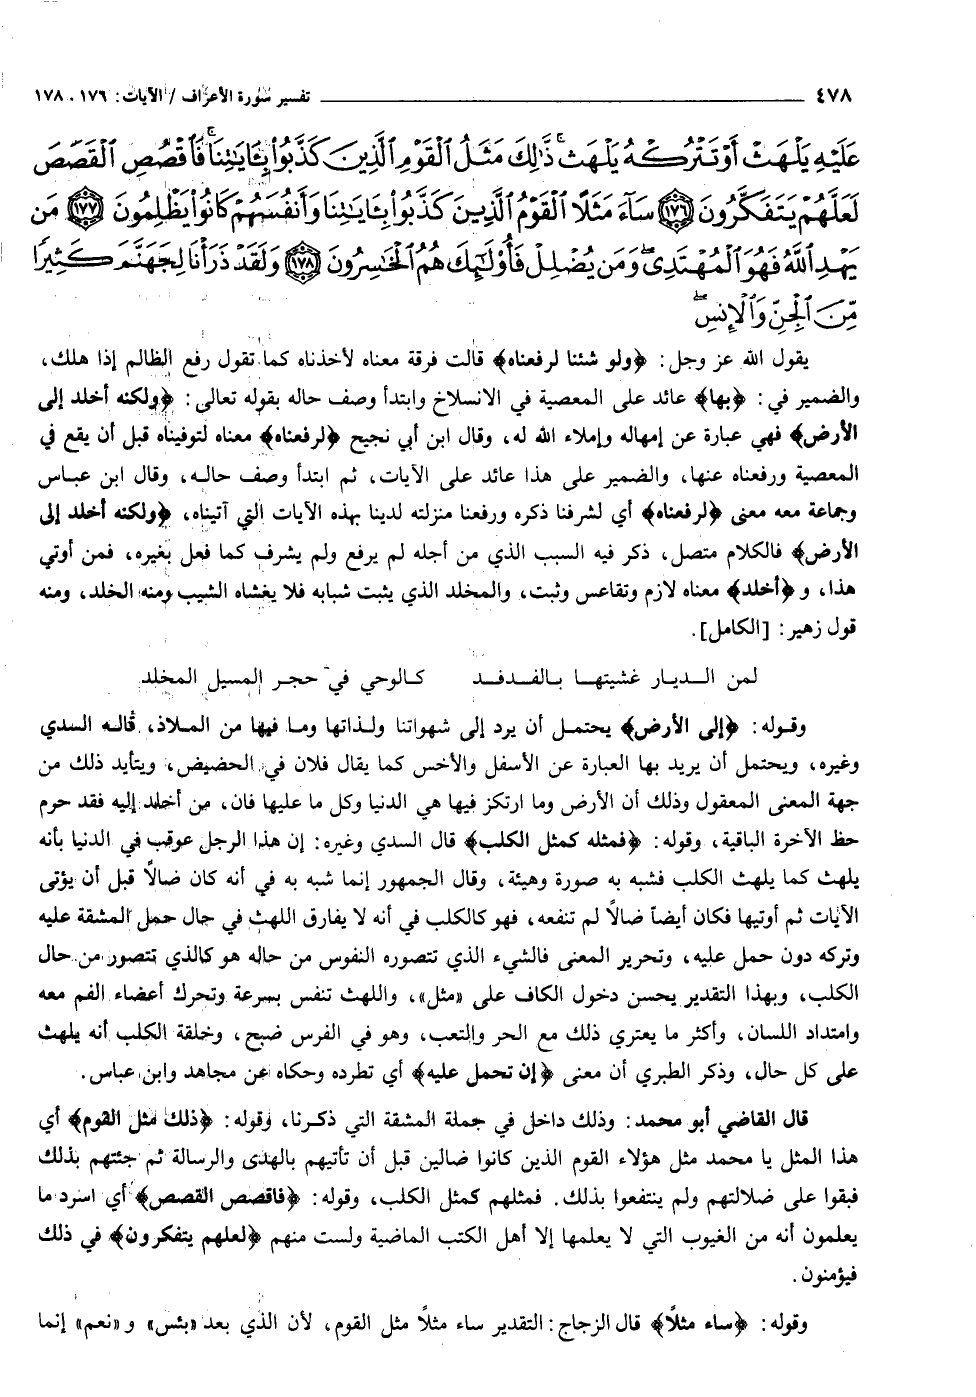 ٤٧٨ تفسير سورة الأعراف / الآيات: ١٧٦ - ١٧٨
عَلَيْهِ يَلْهَثْ أَوْ تَتْرُكْهُ يَلْهَث ذَّٰلِكَ مَثَلُ الْقَوْمِ الَّذِينَ كَذَّبُوا بِـَٔايَـٰتِنَا فَاقْصُصِ الْقَصَصَ
لَعَلَّهُمْ يَتَفَكَّرُونَ ١٧٦ سَآءَ مَثَلًا الْقَوْمُ الَّذِينَ كَذَّبُوا بِـَٔايَـٰتِنَا وَأَنفُسَهُمْ كَانُوا يَظْلِمُونَ ١٧٧ مَن
يَهْدِ اللَّهُ فَهُوَ الْمُهْتَدِى وَمَن يُضْلِلْ فَأُولَـٰٓئِكَ هُمُ الْخَـٰسِرُونَ ١٧٨ وَلَقَدْ ذَرَأْنَا لِجَهَنَّمَ كَثِيرًا
مِّنَ الْجِنِّ وَالْإِنسِ
يقول الله عز وجل: ﴿ولو شئنا لرفعناه﴾ قالت فرقة معناه لأخذناه كما تقول رفع الظالم إذا هلك،
والضمير في: ﴿بها﴾ عائد على المعصية في الانسلاخ وابتدأ وصف حاله بقوله تعالى: ﴿ولكنه أخلد إلى
الأرض﴾ فهي عبارة عن إمهاله وإملاء الله له، وقال ابن أبي نجيح ﴿لرفعناه﴾ معناه لتوفيناه قبل أن يقع في
المعصية ورفعناه عنها، والضمير على هذا عائد على الآيات، ثم ابتدأ وصف حاله، وقال ابن عباس
وجماعة معه معنى ﴿لرفعناه﴾ أي لشرفنا ذكره ورفعنا منزلته لدينا بهذه الآيات التي آتيناه، ﴿ولكنه أخلد إلى
الأرض﴾ فالكلام متصل، ذكر فيه السبب الذي من أجله لم يرفع ولم يشرف كما فعل بغيره، فمن أوتي
هذا، و ﴿أخلد﴾ معناه لازم وتقاعس وثبت، والمخلد الذي يثبت شبابه فلا يغشاه الشيب ومنه الخلد، ومنه
قول زهير: [الكامل].
لمن الديار غشيتها بالفدفد كالوحي في حجر المسيل المخلد
وقوله: ﴿إلى الأرض﴾ يحتمل أن يرد إلى شهواتنا ولذاتها وما فيها من الملاذ، قاله السدي
وغيره، ويحتمل أن يريد بها العبارة عن الأسفل والأخس كما يقال فلان في الحضيض، ويتأيد ذلك من
جهة المعنى المعقول وذلك أن الأرض وما ارتكز فيها هي الدنيا وكل ما عليها فان، من أخلد إليه فقد حرم
حظ الآخرة الباقية، وقوله: ﴿فمثله كمثل الكلب﴾ قال السدي وغيره: إن هذا الرجل عوقب في الدنيا بأنه
يلهث كما يلهث الكلب فشبه به صورة وهيئة، وقال الجمهور إنما شبه به في أنه كان ضالاً قبل أن يؤتى
الآيات ثم أوتيها فكان أيضاً ضالاً لم تنفعه، فهو كالكلب في أنه لا يفارق اللهث في حال حمل المشقة عليه
وتركه دون حمل عليه، وتحرير المعنى فالشيء الذي تتصوره النفوس من حاله هو كالذي تتصور من حال
الكلب، وبهذا التقدير يحسن دخول الكاف على «مثل»، واللهث تنفس بسرعة وتحرك أعضاء الفم معه
وامتداد اللسان، وأكثر ما يعتري ذلك مع الحر والتعب، وهو في الفرس ضبح، وخلقة الكلب أنه يلهث
على كل حال، وذكر الطبري أن معنى ﴿إن تحمل عليه﴾ أي تطرده وحكاه عن مجاهد وابن عباس.
قال القاضي أبو محمد: وذلك داخل في جملة المشقة التي ذكرنا، وقوله: ﴿ذلك مثل القوم﴾ أي
هذا المثل يا محمد مثل هؤلاء القوم الذين كانوا ضالين قبل أن تأتيهم بالهدى والرسالة ثم جئتهم بذلك
فبقوا على ضلالتهم ولم ينتفعوا بذلك. فمثلهم كمثل الكلب، وقوله: ﴿فاقصص القصص﴾ أي اسرد ما
يعلمون أنه من الغيوب التي لا يعلمها إلا أهل الكتب الماضية ولست منهم ﴿لعلهم يتفكرون﴾ في ذلك
فيؤمنون.
وقوله: ﴿ساء مثلاً﴾ قال الزجاج: التقدير ساء مثلاً مثل القوم، لأن الذي بعد «بئس» و «نعم» إنما